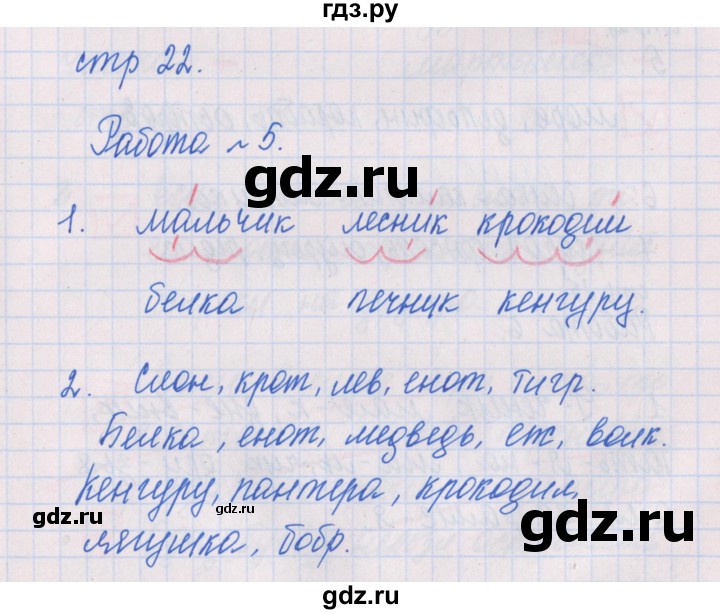 гдз.ру
стр 22.
Работа № 5.
1. мальчик лесник крокодил
белка печник кенгуру.
2. Слон, крот, лев, енот, тигр.
Белка, енот, медведь, еж, волк.
Кенгуру, пантера, крокодил,
лягушка, бобр.
gdz.ru gdz.ru gdz.ru
gdz.ru